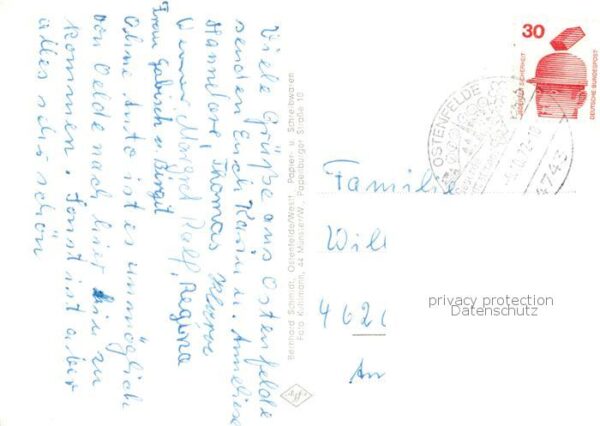 Viele Grüße aus Ostenfelde
senden Euch Karin u. Anneliese
Hannelore, Thomas
Werner Margret Ralf, Regina
Frau u. Birgit
Ohne Auto ist es unmöglich
von Oelde nach hier hin zu
kommen. Sonst ist aber
alles sehr schön
Bernhard Schmidt, Ostenfelde/Westf., Papier- u. Schreibwaren
Foto Kuhlmann, 44 Münster/W., Papenburger Straße 10
30
DEUTSCHE BUNDESPOST
OSTENFELDE
4743
Familie
Will
462
An
privacy protection
Datenschutz